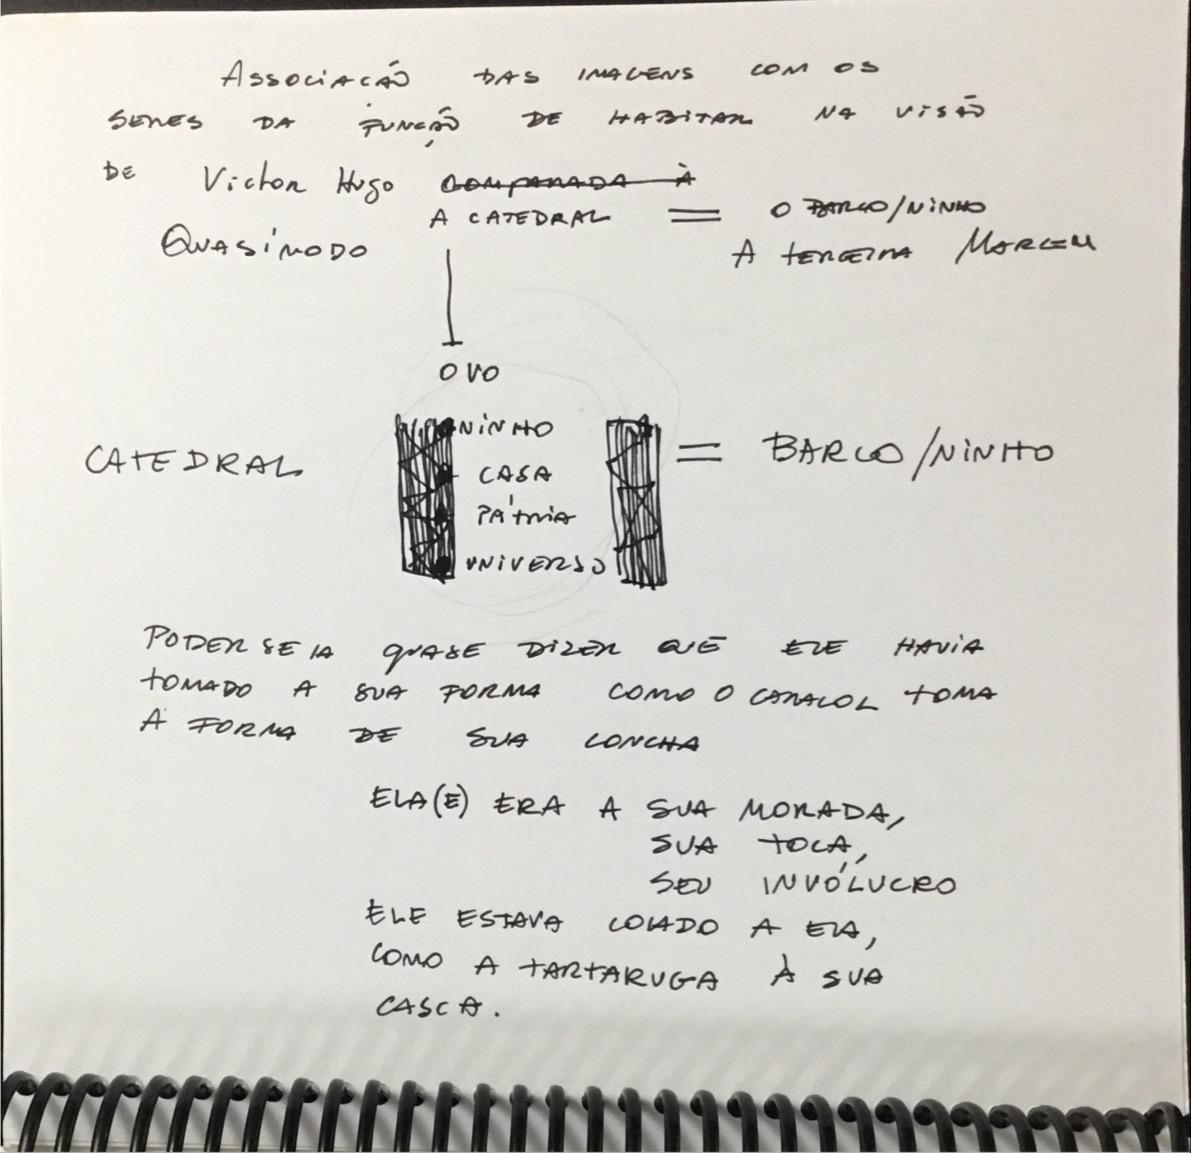 ASSOCIAÇÃO DAS IMAGENS COM OS
SERES DA FUNÇÃO DE HABITAR NA VISÃO
DE Victor Hugo COMPARADA À
A CATEDRAL = O BARCO/NINHO
QUASÍMODO A TERCEIRA MARGEM
OVO
NINHO
CATEDRAL = BARCO/NINHO
CASA
PÁTRIA
UNIVERSO
PODER SE IA QUASE DIZER QUE ELE HAVIA
TOMADO A SUA FORMA COMO O CARACOL TOMA
A FORMA DE SUA CONCHA
ELA(E) ERA A SUA MORADA,
SUA TOCA,
SEU INVÓLUCRO
ELE ESTAVA COLADO A ELA,
COMO A TARTARUGA À SUA
CASCA.